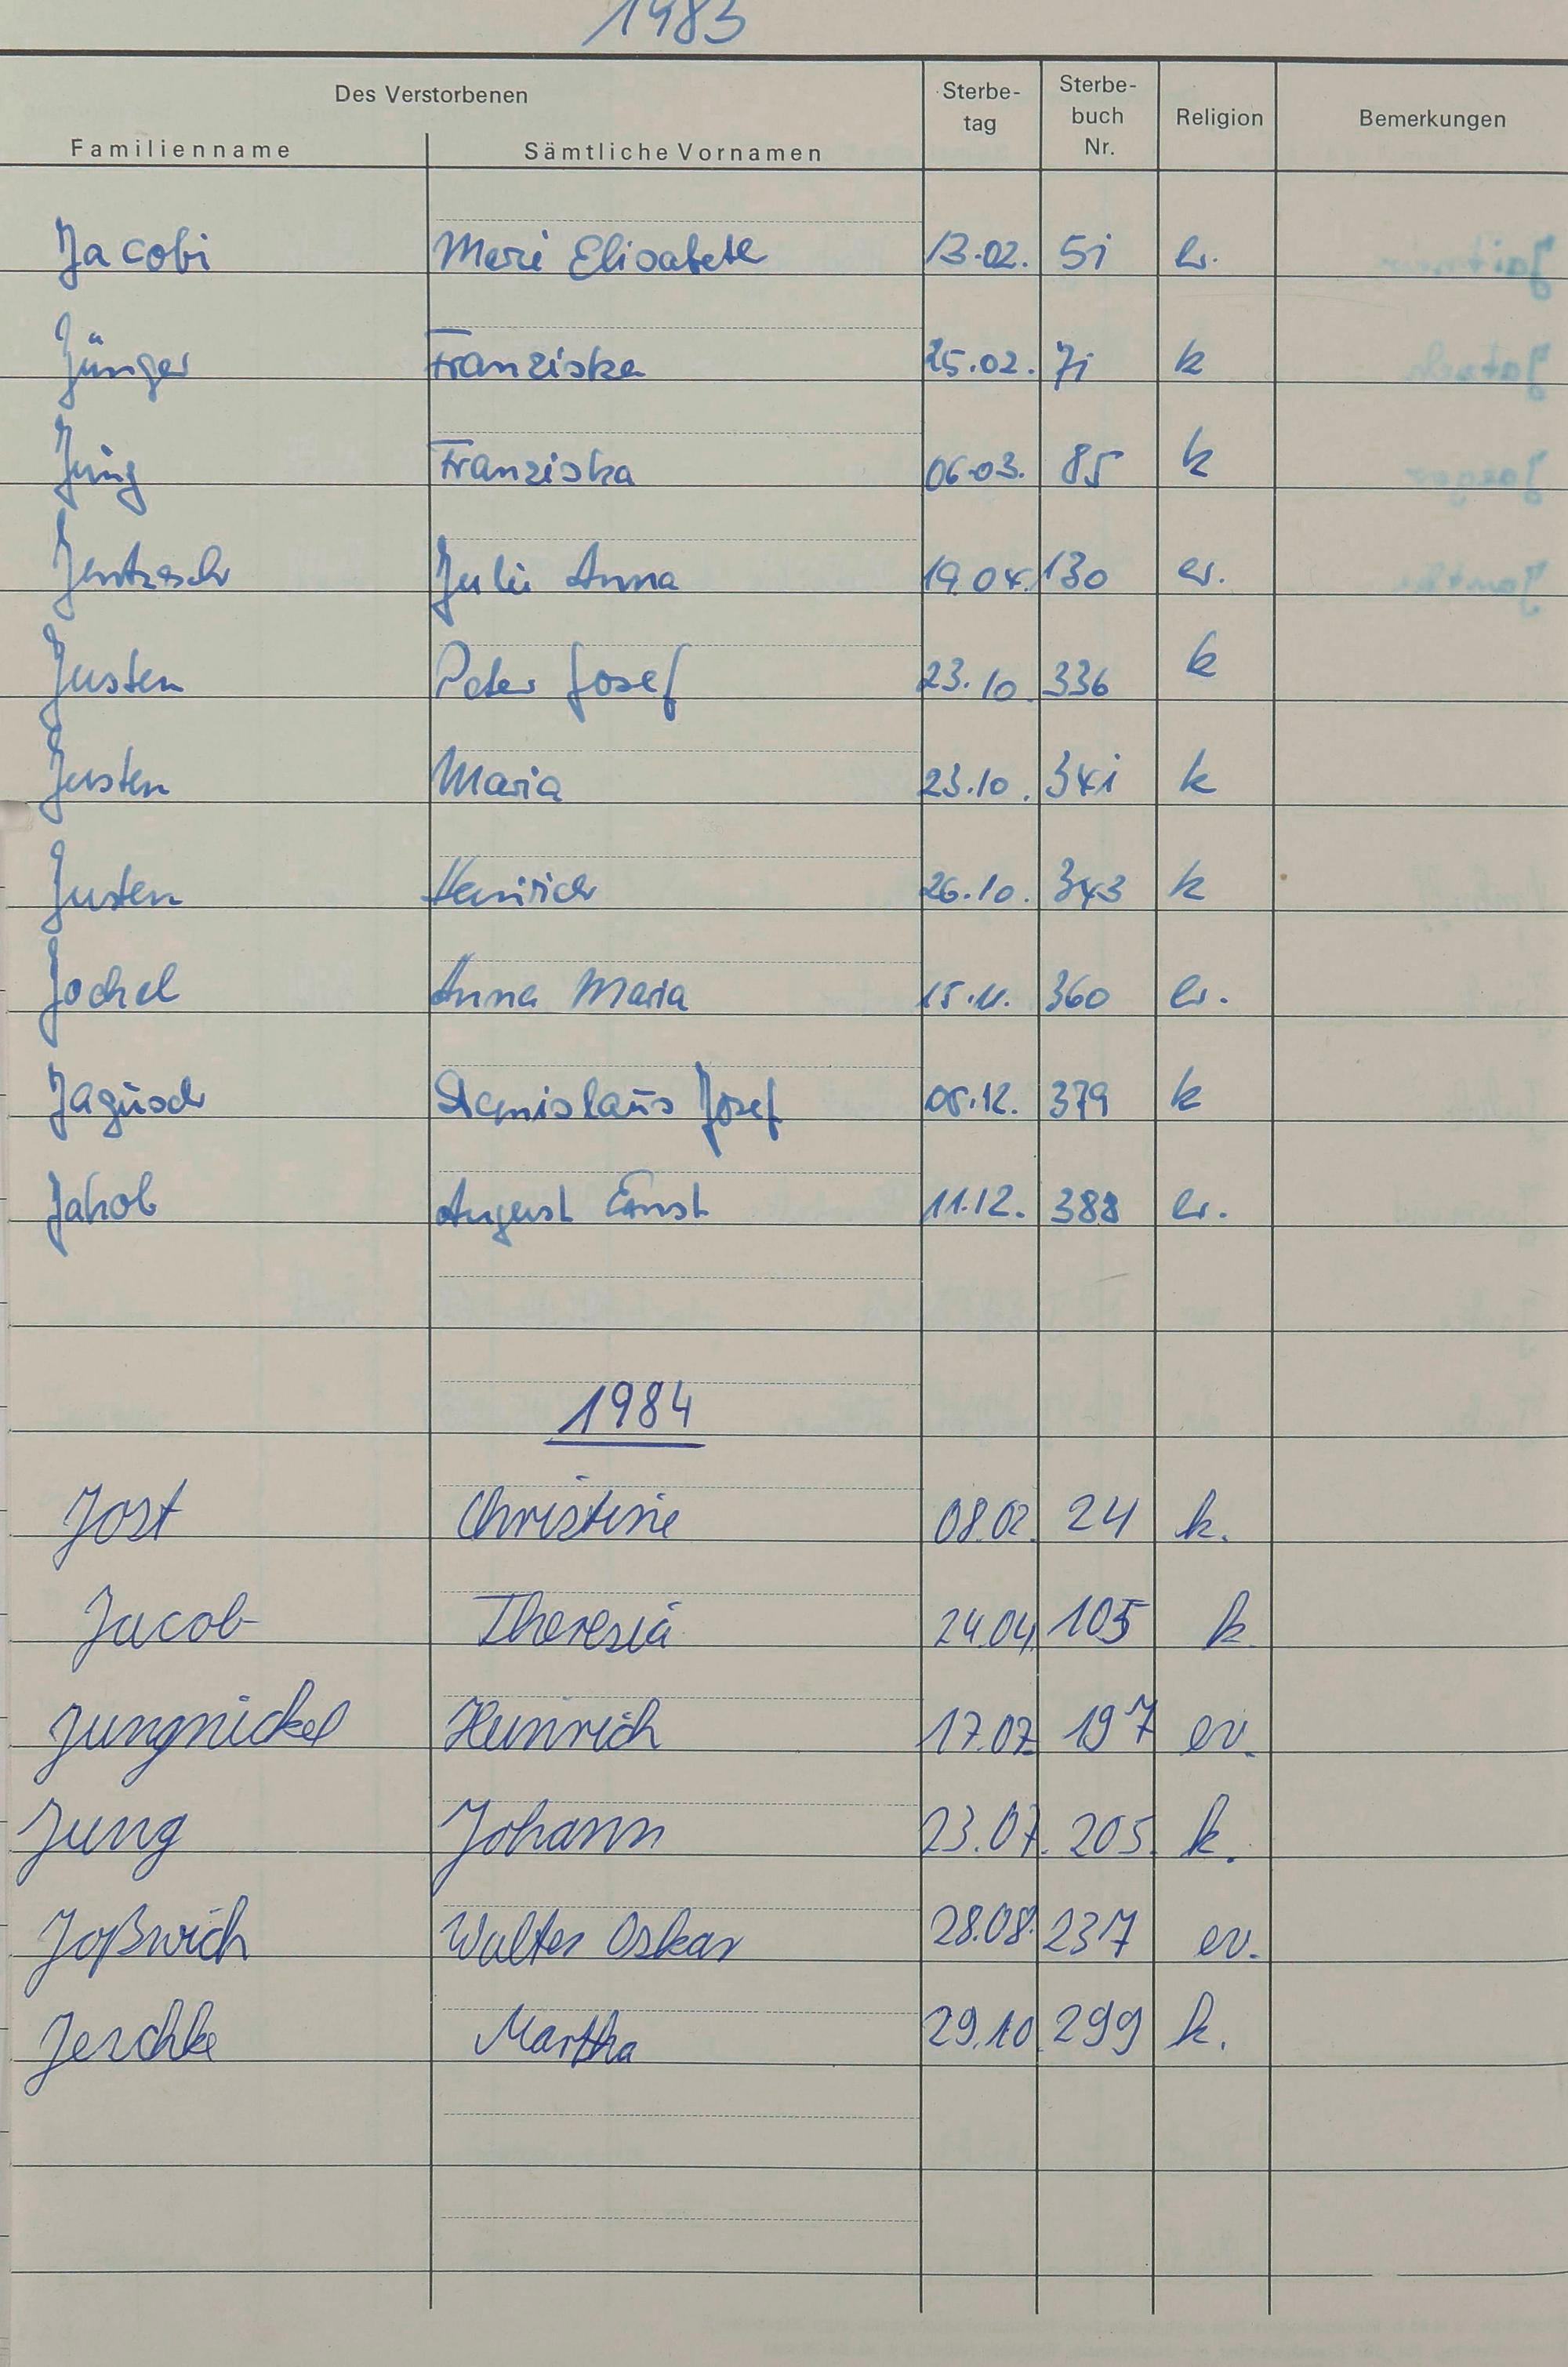 1983
Des Verstorbenen Sterbe- Sterbe-
tag buch Religion Bemerkungen
Familienname Sämtliche Vornamen Nr.
Jacobi Marie Elisabeth 13.02. 51 ev.
Jünger Franziska 25.02. 71 k
Jung Franziska 06.03. 85 k
Jentzsch Julie Anna 19.04. 130 ev.
Justen Peter Josef 23.10. 336 k
Justen Maria 23.10. 341 k
Justen Heinrich 26.10. 343 k
Jochel Anna Maria 15.11. 360 ev.
Jagusch Stanislaus Josef 05.12. 379 k
Jakob August Ernst 11.12. 388 ev.
1984
Jost Christine 08.02. 24 k.
Jacob Theresia 24.04. 105 k
Jungnickel Heinrich 17.07. 197 ev.
Jung Johann 23.07. 205. k.
Joßwich Walter Oskar 28.08. 237 ev.
Jeschke Martha 29.10. 299 k.